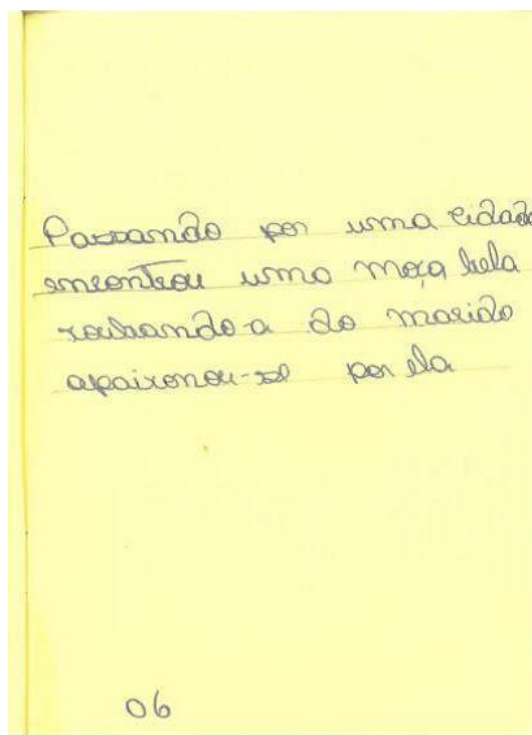 Passando por uma cidade
encontrou uma moça bela
roubando-a do marido
apaixonou-se por ela
06